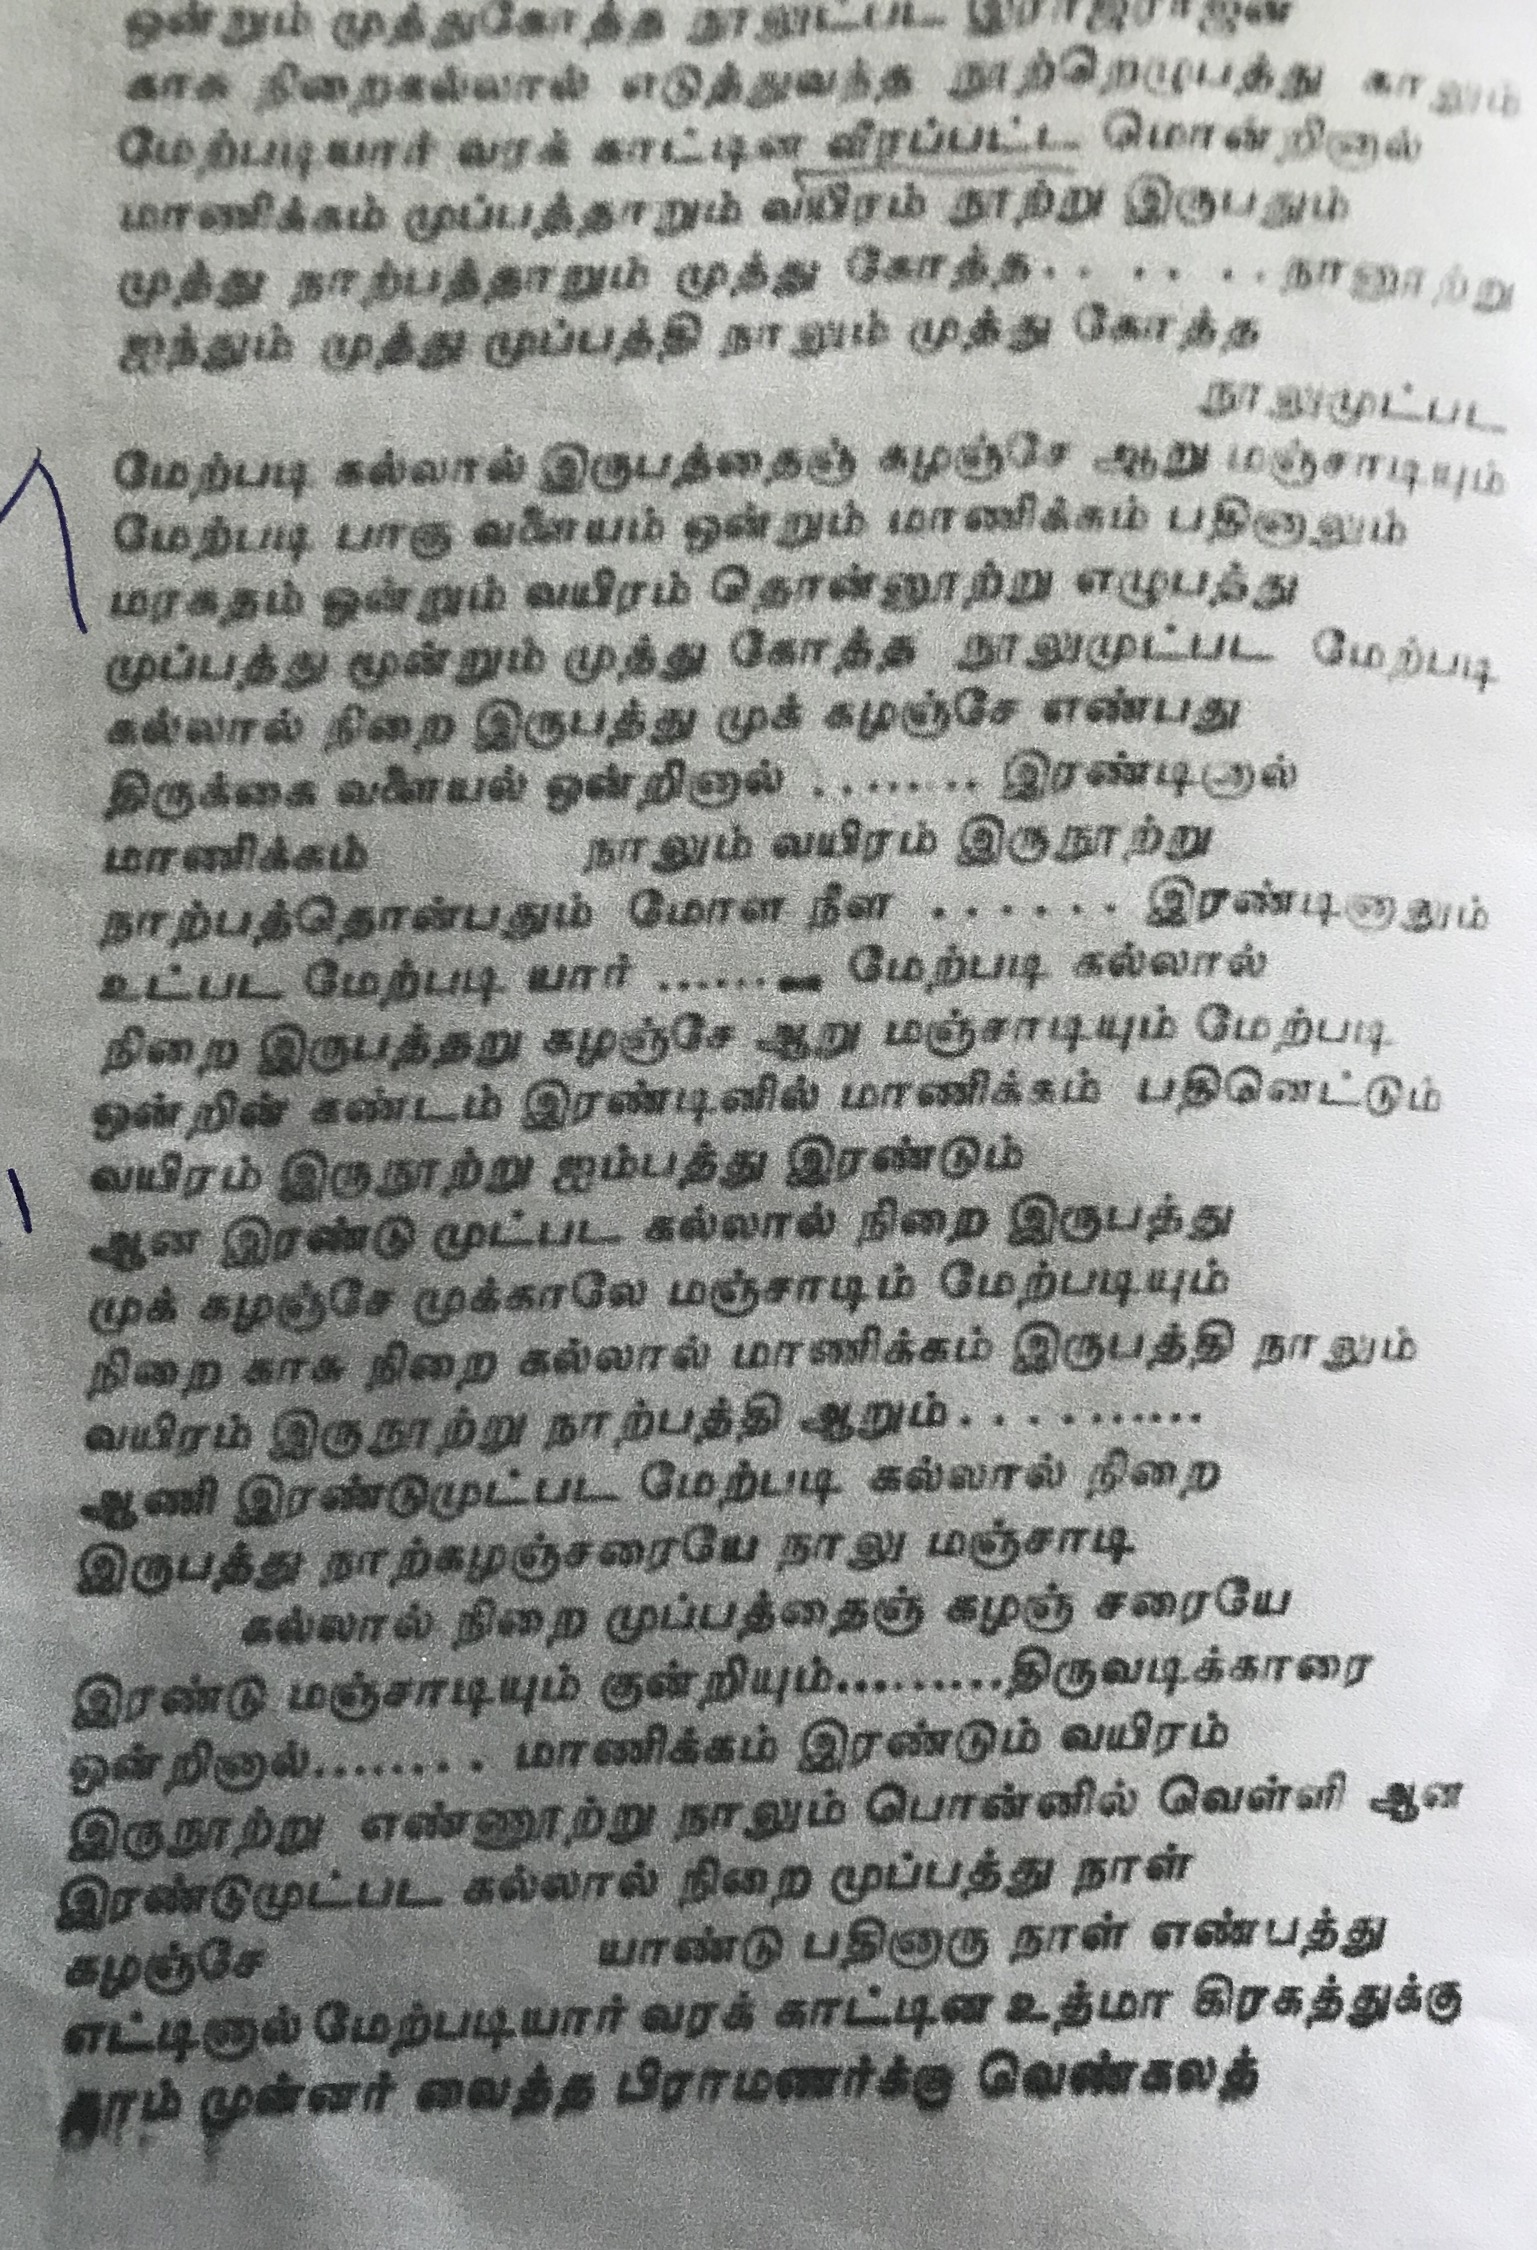 ஒன்றும் முத்துகோத்த நாலுட்பட இராஜராஜன்
காசு நிறைகல்லால் எடுத்துவந்த நூற்றெழுபத்து காலும்
மேற்படியார் வரக் காட்டின வீரப்பட்ட மொன்றினால்
மாணிக்கம் முப்பத்தாறும் வயிரம் நூற்று இருபதும்
முத்து நாற்பத்தாறும் முத்து கோத்த. . . . . .நானூற்று
ஐந்தும் முத்து முப்பத்தி நாலும் முத்து கோத்த
நாலுமுட்பட
மேற்படி கல்லால் இருபத்தைஞ் கழஞ்சே ஆறு மஞ்சாடியும்
மேற்படி பாகு வளையம் ஒன்றும் மாணிக்கம் பதினாலும்
மரகதம் ஒன்றும் வயிரம் தொன்னூற்று எழுபத்து
முப்பத்து மூன்றும் முத்து கோத்த நாலுமுட்பட மேற்படி
கல்லால் நிறை இருபத்து முக் கழஞ்சே எண்பது
திருக்கை வளையல் ஒன்றினால் ........ இரண்டினால்
மாணிக்கம் நாலும் வயிரம் இருநூற்று
நாற்பத்தொன்பதும் மோள நீள ...... இரண்டினாலும்
உட்பட மேற்படி யார் ........ மேற்படி கல்லால்
நிறை இருபத்தறு கழஞ்சே ஆறு மஞ்சாடியும் மேற்படி
ஒன்றின் கண்டம் இரண்டினில் மாணிக்கம் பதினெட்டும்
வயிரம் இருநூற்று ஐம்பத்து இரண்டும்
ஆன இரண்டு முட்பட கல்லால் நிறை இருபத்து
முக் கழஞ்சே முக்காலே மஞ்சாடிம் மேற்படியும்
நிறை காசு நிறை கல்லால் மாணிக்கம் இருபத்தி நாலும்
வயிரம் இருநூற்று நாற்பத்தி ஆறும்..........
ஆணி இரண்டுமுட்பட மேற்படி கல்லால் நிறை
இருபத்து நாற்கழஞ்சரையே நாலு மஞ்சாடி
கல்லால் நிறை முப்பத்தைஞ் கழஞ் சரையே
இரண்டு மஞ்சாடியும் குன்றியும்.........திருவடிக்காரை
ஒன்றினால்........ மாணிக்கம் இரண்டும் வயிரம்
இருநூற்று எண்ணூற்று நாலும் பொன்னில் வெள்ளி ஆன
இரண்டுமுட்பட கல்லால் நிறை முப்பத்து நாள்
கழஞ்சே யாண்டு பதினாரு நாள் எண்பத்து
எட்டினால் மேற்படியார் வரக் காட்டின உத்மா கிரகத்துக்கு
தாம் முன்னர் வைத்த பிராமணர்க்கு வெண்கலத்